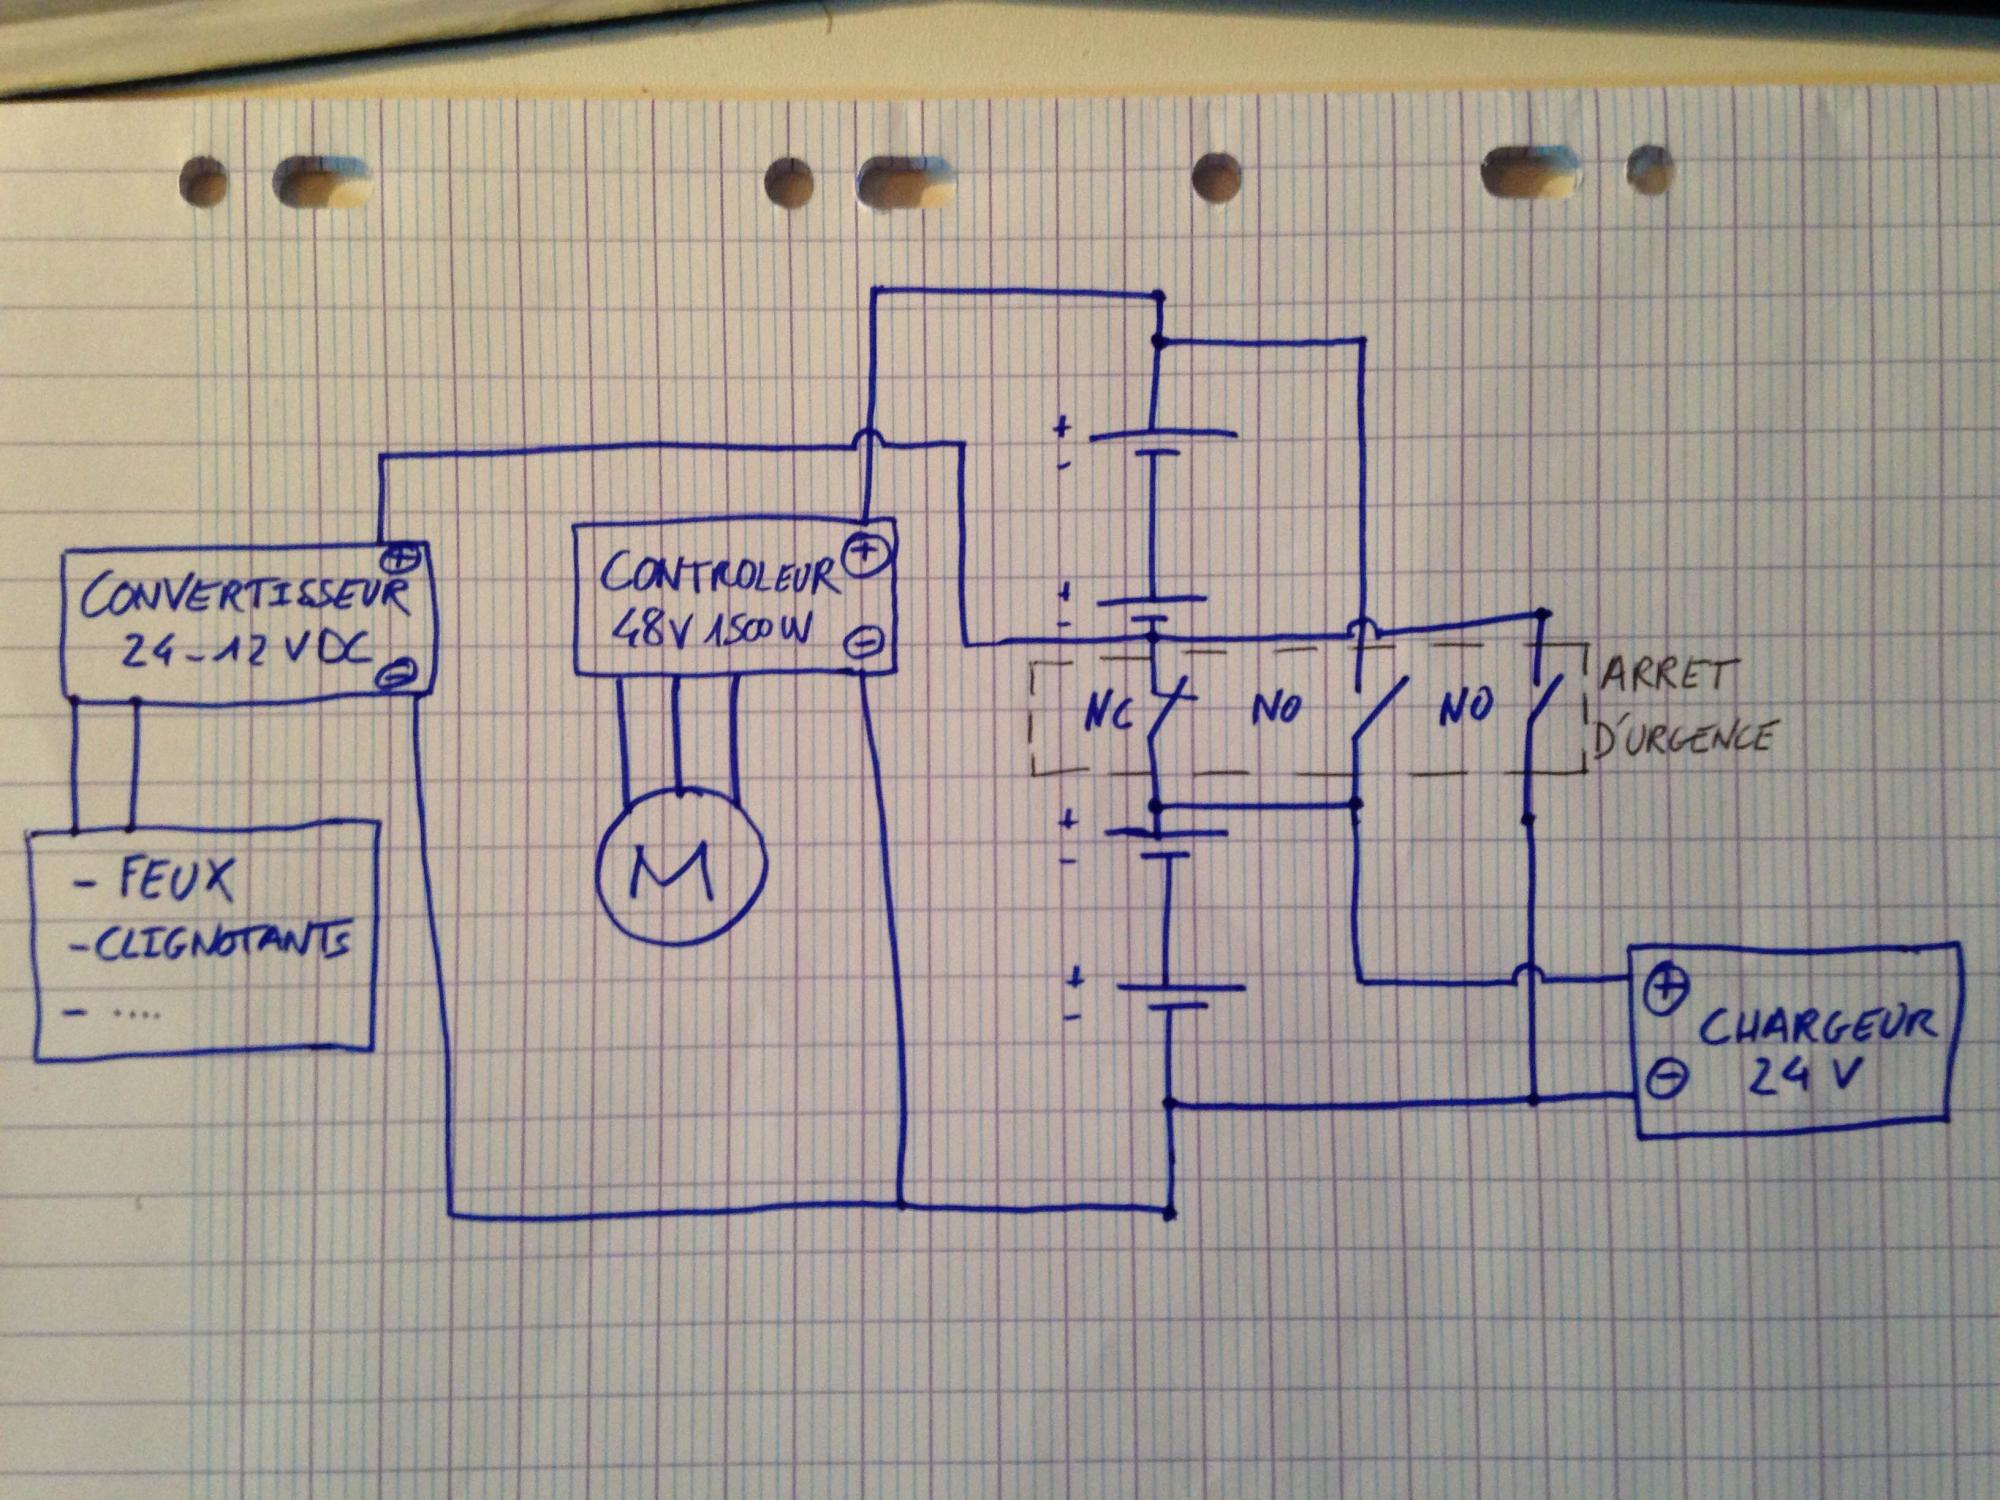 +
-
CONVERTISSEUR
24-12 VDC
+
-
CONTROLEUR
48V 1500W
+
-
+
-
NC
NO
NO
ARRET
D'URGENCE
+
-
- FEUX
- CLIGNOTANTS
- ....
M
+
-
+
-
CHARGEUR
24 V